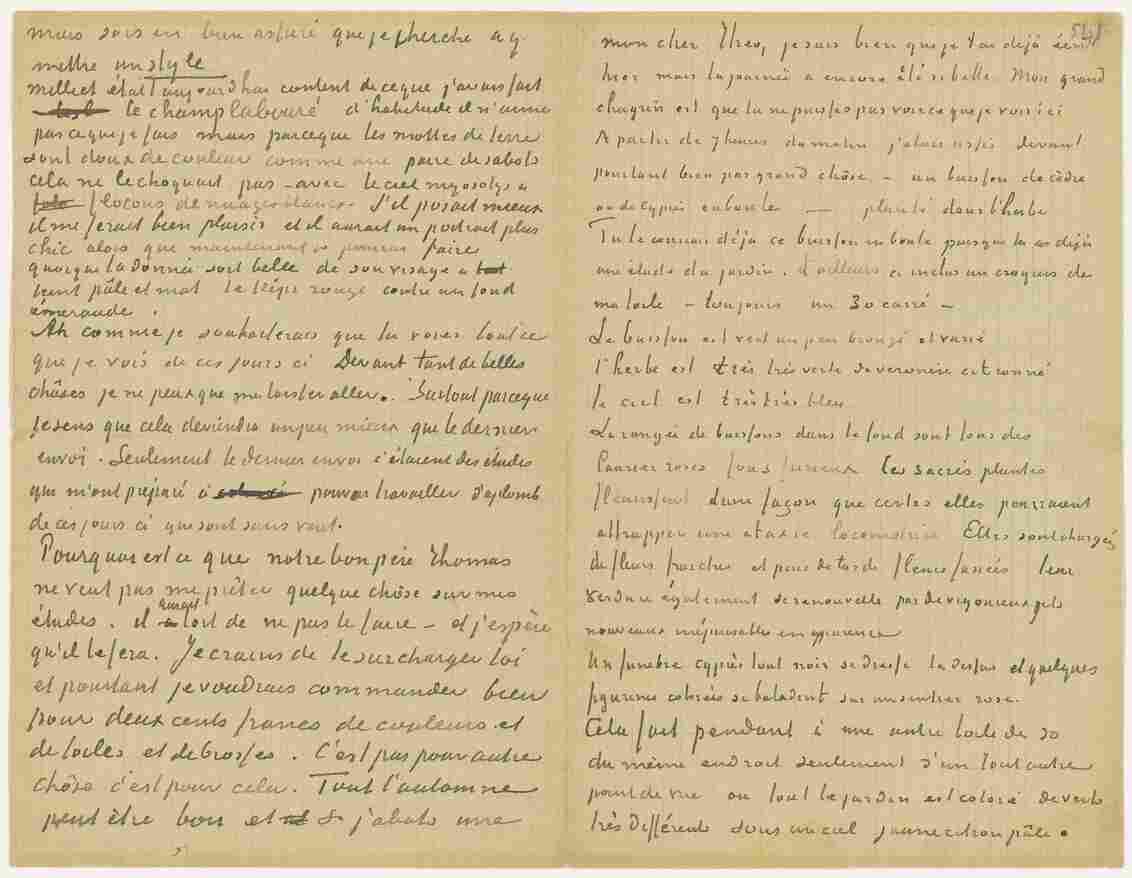 mais sois en bien assuré que je cherche a y
mettre un style
Milliet était aujourd'hui content de ce que j'avais fait
le champ labouré d'habitude il n'aime
pas ce que je fais mais parceque les mottes de terre
sont doux de couleur comme une paire de sabots
cela ne le choquait pas – avec le ciel myosotys a
flocons de nuages blancs. S'il posait mieux
il me ferait bien plaisir et il aurait un portrait plus
chic alors que maintenant je pourrai faire
quoique la donnée soit belle de son visage a
teint pâle et mat le képi rouge contre un fond
émeraude.
Ah comme je souhaiterais que tu voies tout ce
que je vois de ces jours ci Devant tant de belles
chôses je ne peux que me laisser aller. Surtout parceque
je sens que cela deviendra un peu mieux que le dernier
envoi. Seulement le dernier envoi c'étaient des études
qui m'ont préparé à pouvoir travailler d'aplomb
de ces jours ci qui sont sans vent.
Pourquoi est ce que notre bon père Thomas
ne veut pas me prêter quelque chôse sur mes
études. il aurait tort de ne pas le faire – et j'espère
qu'il le fera. Je crains de te surcharger toi
et pourtant je voudrais commander bien
pour deux cents francs de couleurs et
de toiles et de brosses. C'est pas pour autre
chôse c'est pour cela. Tout l'automne
peut être bon et si j'abats une
541
mon cher Theo, je sais bien que je t'ai déjà écrit
hier mais la journée a encore été si belle. Mon grand
chagrin est que tu ne puisses pas voir ce que je vois ici
A partir de 7 heures du matin j'etais assis devant
pourtant bien pas grand chôse – un buisson de cèdre
ou de cyprès en boule – planté dans l'herbe
Tu le connais déjà ce buisson en boule puisque tu as déjà
une étude du jardin. D'ailleurs ci inclus un croquis de
ma toile – toujours un 30 carré –
Le buisson est vert un peu bronzé et varié
l'herbe est très très verte du veronèse citronné
le ciel est très très bleu
La rangée de buissons dans le fond sont tous des
lauriers roses fous furieux les sacrés plantes
fleurissent d'une façon que certes elles pourraient
attrapper une ataxie locomotrice Elles sont chargées
de fleurs fraiches et puis de tas de fleurs fanées leur
verdure également se renouvelle par de vigoureux jets
nouveaux inépuisables en apparence
Un funèbre cyprès tout noir se dresse la dessus et quelques
figurines colorées se baladent sur un sentier rose.
Cela fait pendant à une autre toile de 30
du même endroit seulement d'un tout autre
point de vue ou tout le jardin est coloré de verts
très différents sous un ciel jaune citron pâle.